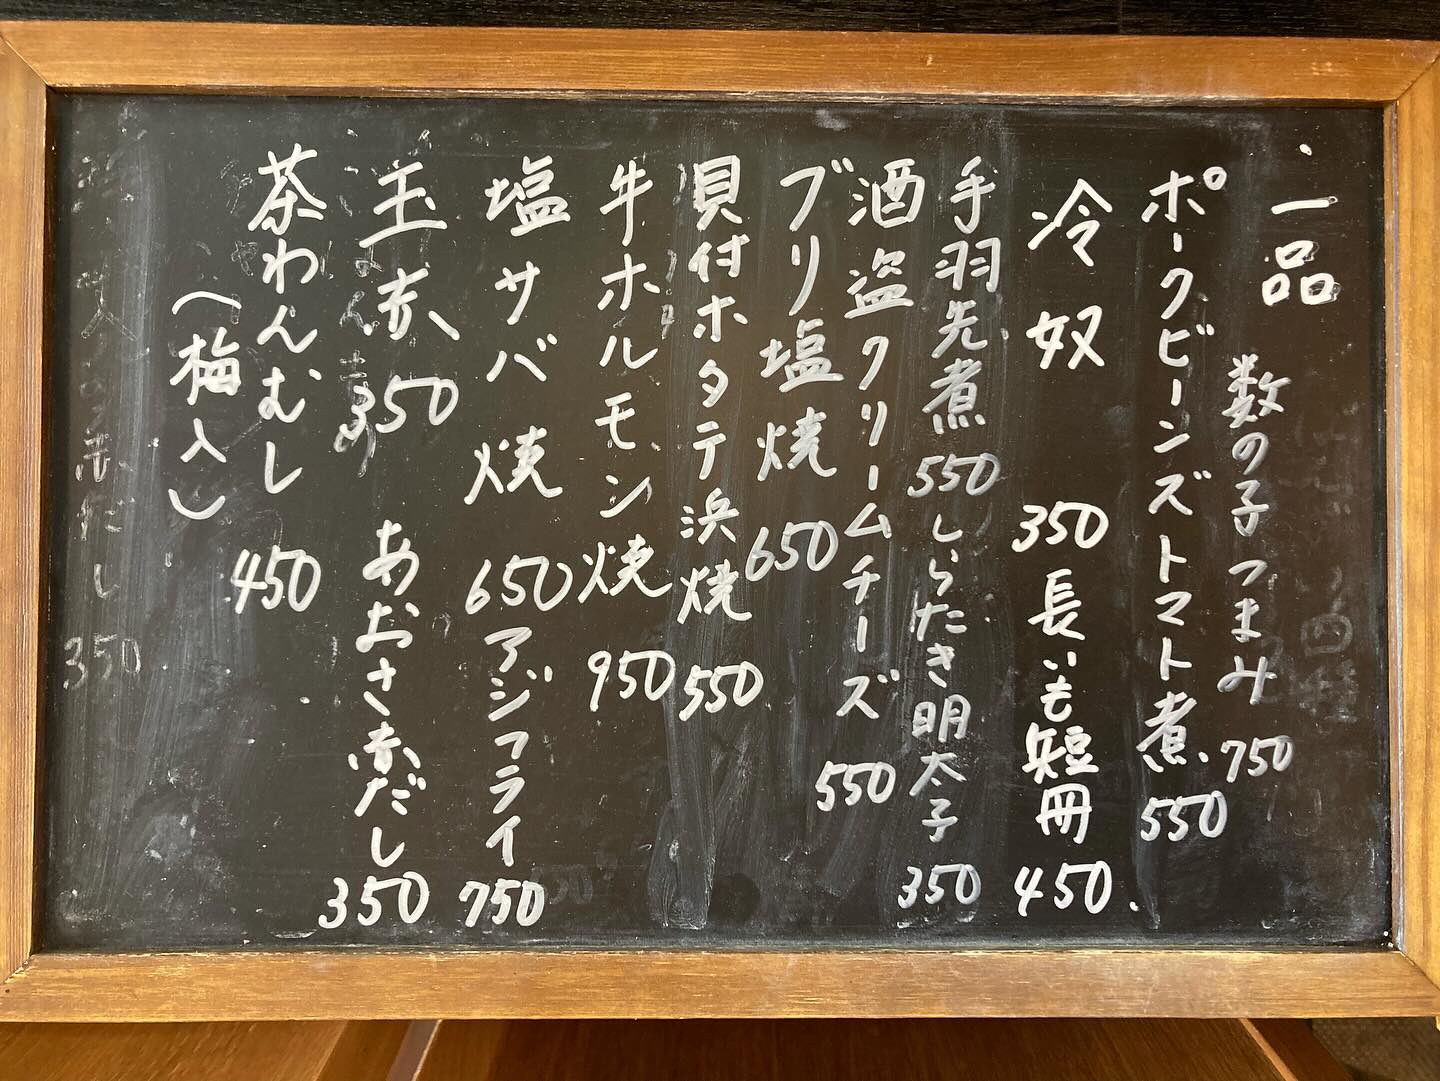 一品
数の子つまみ 750
ポークビーンズトマト煮 550
冷奴 350 長いも短冊 450
手羽先煮 550 しらたき明太子 350
酒盗クリームチーズ 550
ブリ塩焼 650
貝付ホタテ浜焼 550
牛ホルモン焼 950
塩サバ焼 650 アジフライ 750
玉赤 350 あおさ赤だし 350
茶わんむし 450
(梅入)
赤だし 350